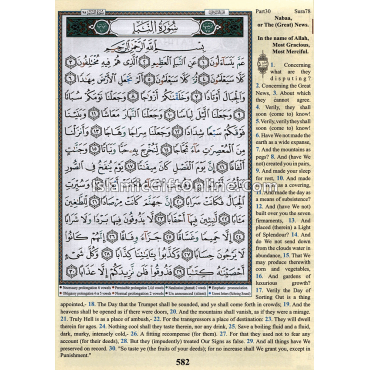 Part30 Sura78
سُورَةُ النَّبَإِ
بِسْمِ اللَّهِ الرَّحْمَٰنِ الرَّحِيمِ
عَمَّ يَتَسَاءَلُونَ ١ عَنِ النَّبَإِ الْعَظِيمِ ٢ الَّذِي هُمْ فِيهِ مُخْتَلِفُونَ ٣
كَلَّا سَيَعْلَمُونَ ٤ ثُمَّ كَلَّا سَيَعْلَمُونَ ٥ أَلَمْ نَجْعَلِ الْأَرْضَ مِهَادًا ٦
وَالْجِبَالَ أَوْتَادًا ٧ وَخَلَقْنَاكُمْ أَزْوَاجًا ٨ وَجَعَلْنَا نَوْمَكُمْ سُبَاتًا ٩
وَجَعَلْنَا اللَّيْلَ لِبَاسًا ١٠ وَجَعَلْنَا النَّهَارَ مَعَاشًا ١١ وَبَنَيْنَا
فَوْقَكُمْ سَبْعًا شِدَادًا ١٢ وَجَعَلْنَا سِرَاجًا وَهَّاجًا ١٣ وَأَنْزَلْنَا
مِنَ الْمُعْصِرَاتِ مَاءً ثَجَّاجًا ١٤ لِنُخْرِجَ بِهِ حَبًّا وَنَبَاتًا ١٥ وَجَنَّاتٍ
أَلْفَافًا ١٦ إِنَّ يَوْمَ الْفَصْلِ كَانَ مِيقَاتًا ١٧ يَوْمَ يُنْفَخُ فِي الصُّورِ
فَتَأْتُونَ أَفْوَاجًا ١٨ وَفُتِحَتِ السَّمَاءُ فَكَانَتْ أَبْوَابًا ١٩ وَسُيِّرَتِ
الْجِبَالُ فَكَانَتْ سَرَابًا ٢٠ إِنَّ جَهَنَّمَ كَانَتْ مِرْصَادًا ٢١ لِلطَّاغِينَ
مَآبًا ٢٢ لَابِثِينَ فِيهَا أَحْقَابًا ٢٣ لَا يَذُوقُونَ فِيهَا بَرْدًا وَلَا شَرَابًا ٢٤
إِلَّا حَمِيمًا وَغَسَّاقًا ٢٥ جَزَاءً وِفَاقًا ٢٦ إِنَّهُمْ كَانُوا لَا يَرْجُونَ
حِسَابًا ٢٧ وَكَذَّبُوا بِآيَاتِنَا كِذَّابًا ٢٨ وَكُلَّ شَيْءٍ
أَحْصَيْنَاهُ كِتَابًا ٢٩ فَذُوقُوا فَلَنْ نَزِيدَكُمْ إِلَّا عَذَابًا ٣٠
Nabaa,
or The (Great) News.
In the name of Allah,
Most Gracious,
Most Merciful.
1. Concerning
what are they
disputing?
2. Concerning the Great
News, 3. About which
they cannot agree.
4. Verily, they shall
soon (come to) know!
5. Verily, verily they shall
soon (come to) know!
6. Have We not made the
earth as a wide expanse,
7. And the mountains as
pegs? 8. And (have We
not) created you in pairs,
9. And made your sleep
for rest, 10. And made
the night as a covering,
11. And made the day as
a means of subsistence?
12. And (have We not)
built over you the seven
firmaments, 13. And
placed (therein) a Light
of Splendour? 14. And
do We not send down
from the clouds water in
abundance, 15. That We
may produce therewith
corn and vegetables,
16. And gardens of
luxurious growth?
17. Verily the Day of
Sorting Out is a thing
appointed,- 18. The Day that the Trumpet shall be sounded, and ye shall come forth in crowds; 19. And the
heavens shall be opened as if there were doors, 20. And the mountains shall vanish, as if they were a mirage.
21. Truly Hell is as a place of ambush,- 22. For the transgressors a place of destination: 23. They will dwell
therein for ages. 24. Nothing cool shall they taste therein, nor any drink, 25. Save a boiling fluid and a fluid,
dark, murky, intensely cold,- 26. A fitting recompense (for them). 27. For that they used not to fear any
account (for their deeds), 28. But they (impudently) treated Our Signs as false. 29. And all things have We
preserved on record. 30. "So taste ye (the fruits of your deeds); for no increase shall We grant you, except in
Punishment."
582